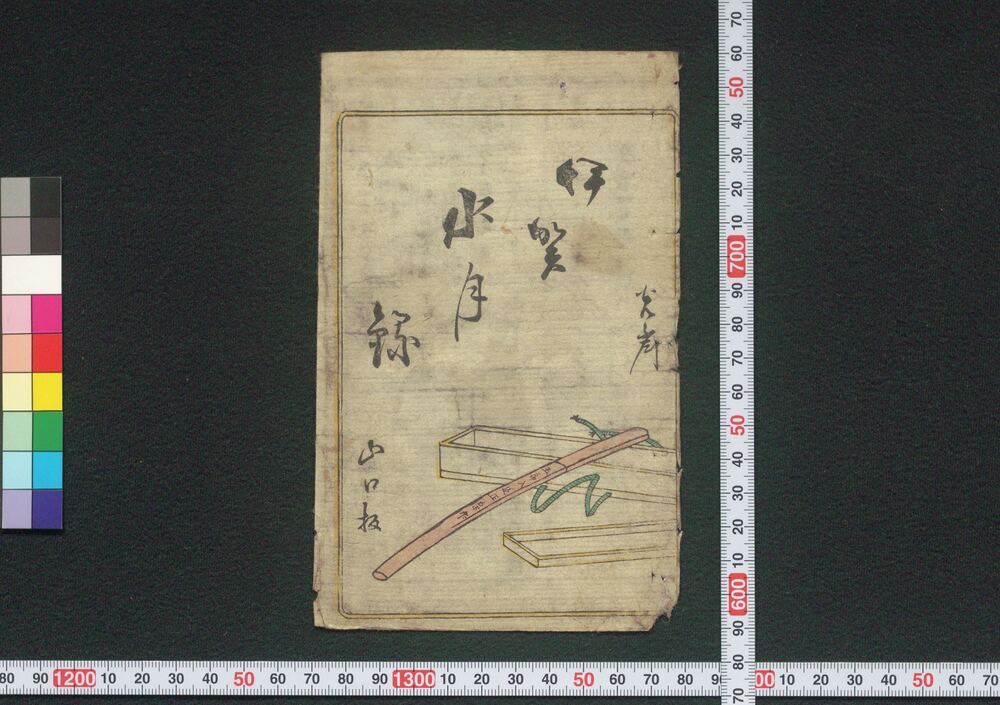 伊賀
水月
録
五郎入道正宗作
山口板
70 60 50 40 30 20 10 700 90 80 70 60 50 40 30 20 10 600 90 80 70
80 90 1200 10 20 30 40 50 60 70 80 90 1300 10 20 30 40 50 60 70 80 90 00 10 20 30 40 50 60 70